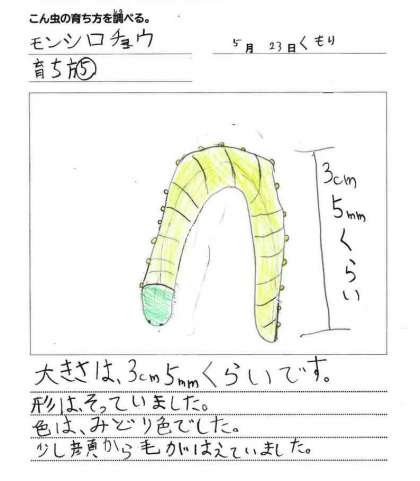 こん虫の育ち方を調べる。
モンシロチョウ
5月 23日 くもり
育ち方⑤
3cm
5mm
くらい
大きさは、3cm5mmくらいです。
形は、そっていました。
色は、みどり色でした。
少し頭から毛がはえていました。